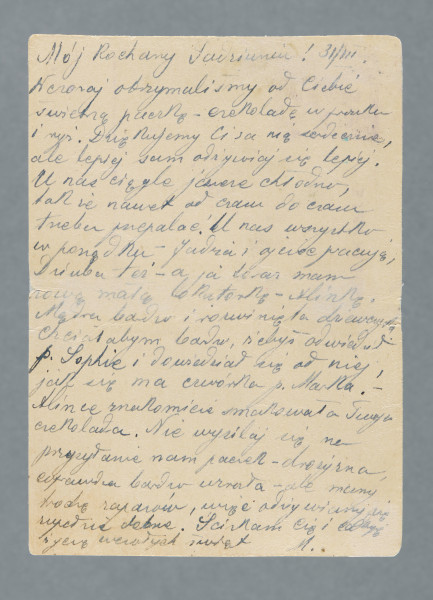 Mój Kochany Tadziuniu! 31/III.
Wczoraj otrzymaliśmy od Ciebie
świetną paczkę - czekoladę w proszku
i ryż. Dziękujemy Ci za nią serdecznie,
ale lepiej sam odżywiaj się lepiej.
U nas ciągle jeszcze chłodno,
tak że nawet od czasu do czasu
trzeba przepalać. U nas wszystko
w porządku - Jadzia i ojciec pracują,
też - a ja teraz mam
nową małą lokatorkę - Alinkę.
Mądra bardzo i rozwinięta dziewczynka
Chciałabym bardzo, żebyś odwiedził
p. Sophie i dowiedział się od niej
jak się ma córka p. Marka. -
Alince znakomicie smakowała Twoja
czekolada. Nie wysilaj się na
przysyłanie nam paczek - drożyzna
coprawda bardzo wzrosła - ale mamy
trochę zapasów, więc odżywiamy się
zupełnie dobrze. Ściskam Cię i całuję
życzę wesołych świąt M.